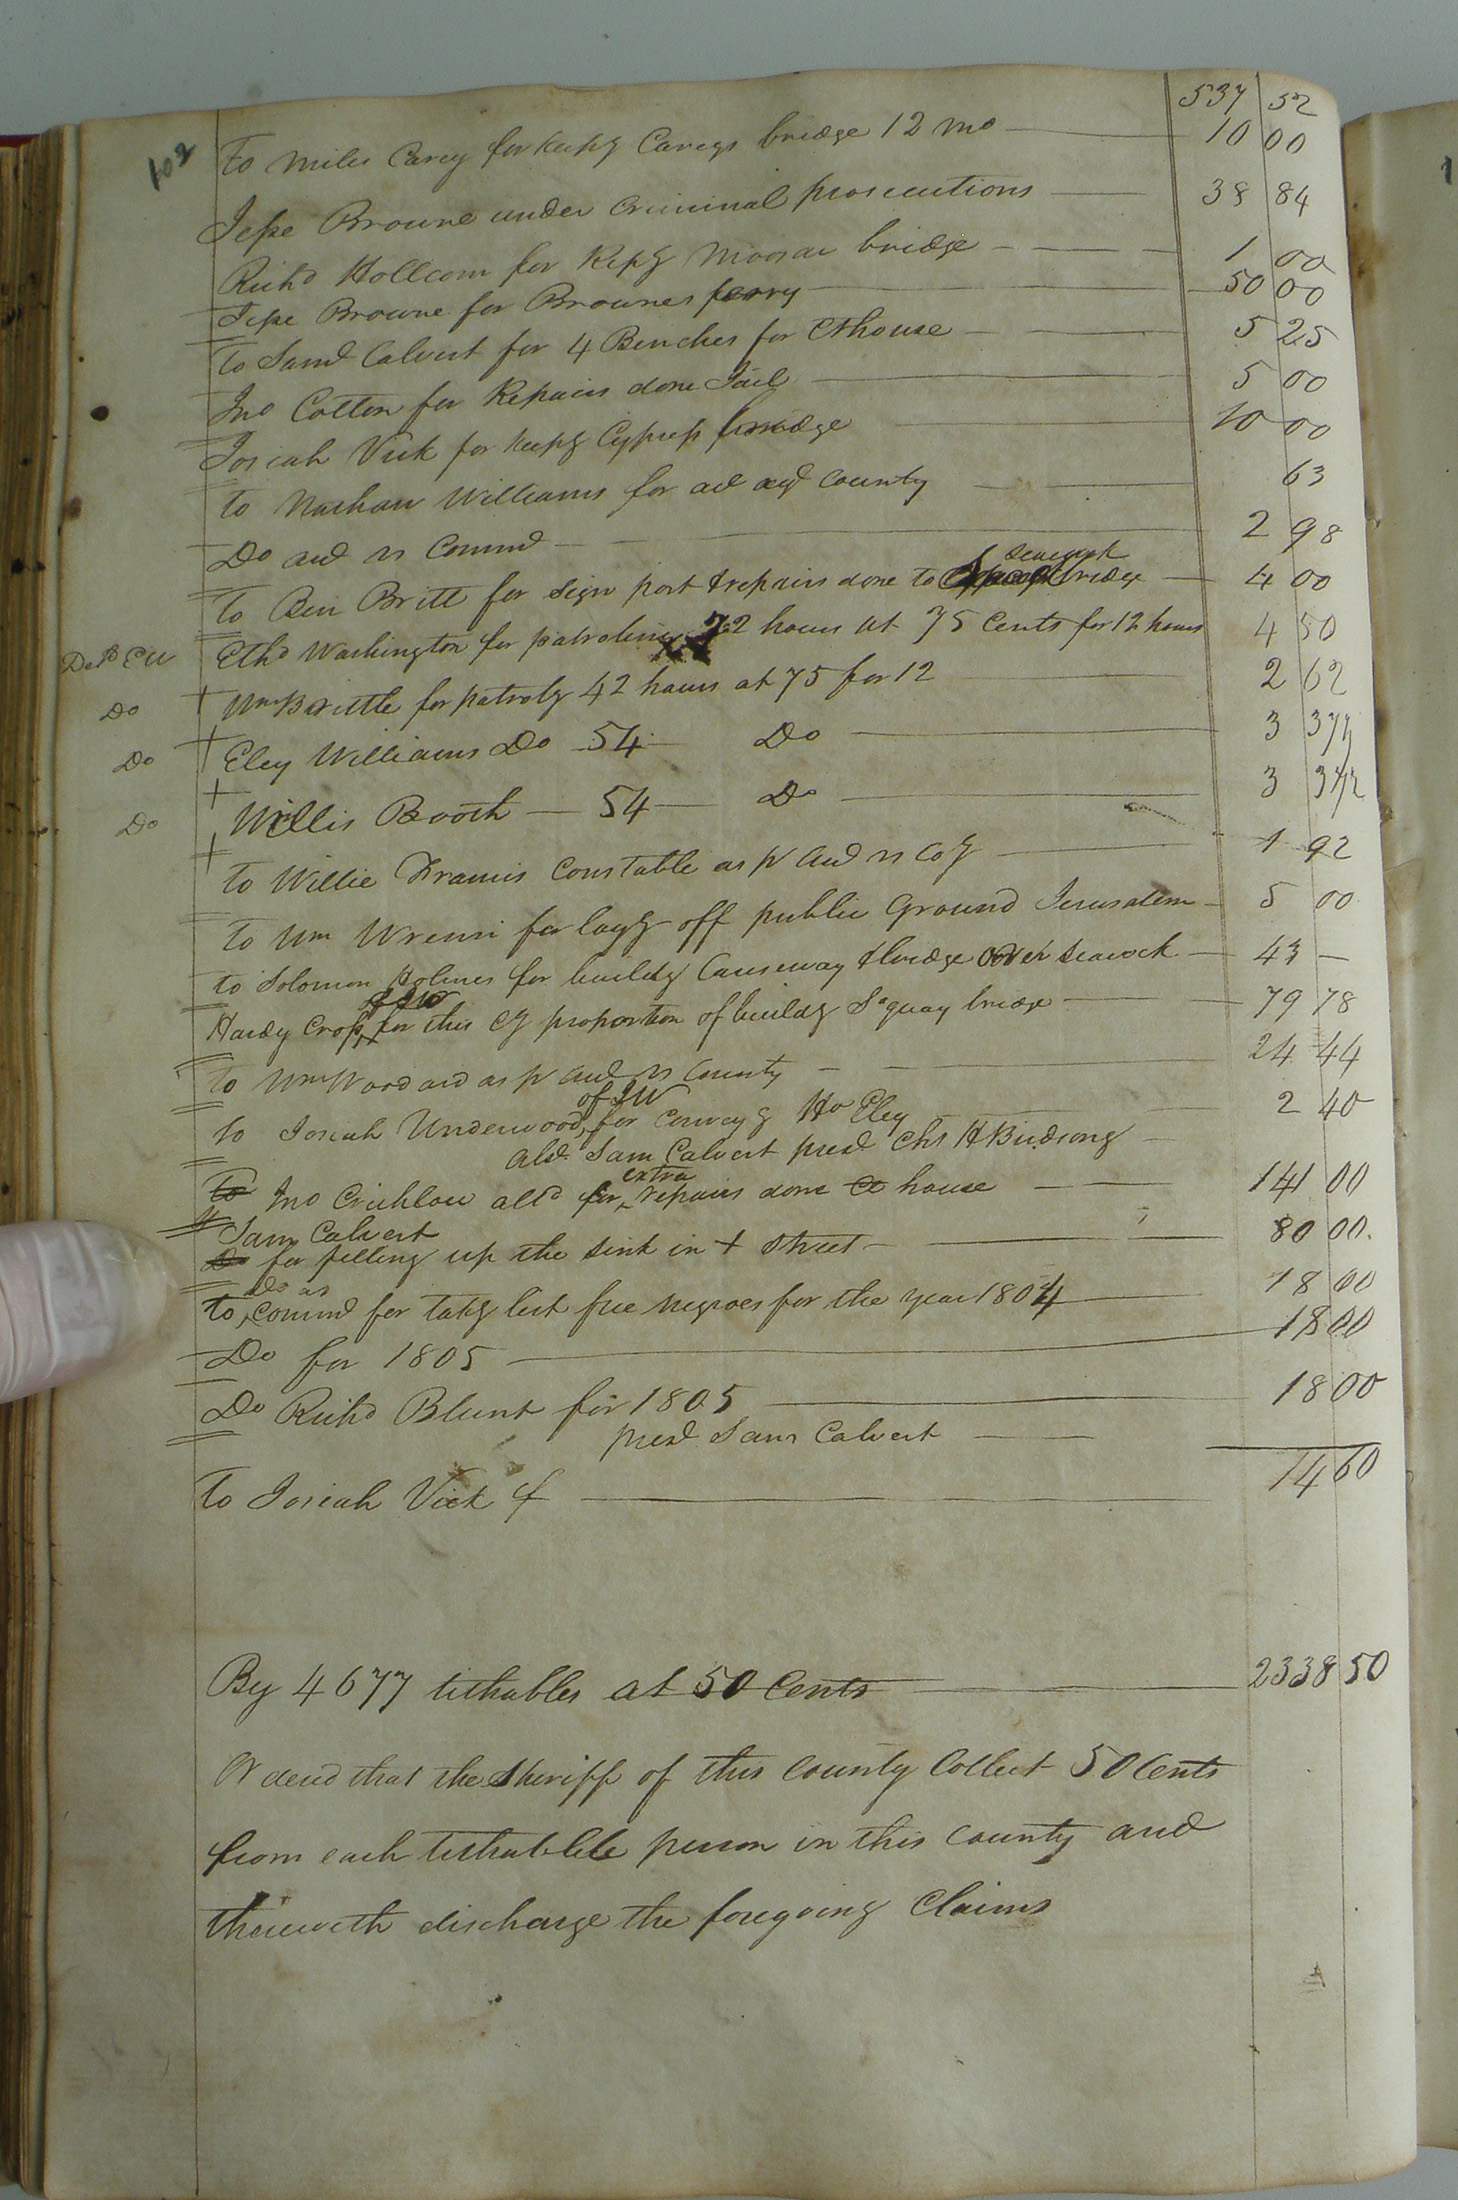 102
537 52
To Miles Carey for keepg Careys bridge 12 mo 10 00
Jesse Browne under Criminal prosecutions 38 84
Richd Hollcom for kepg bridge 1 00
Jesse Browne for Brownes ferry 50 00
To Saml Calvert for 4 Benches for Cthouse 5 25
Jno Cotton for Repairs done Jail 5 00
Josiah Vick for keepg Cypress bridge 10 00
To Nathan Williams for county 63
Do acct vs Commd 2 98
Seacock
To Ben Britt for sign post & repairs done to bridge 4 00
Ethd Washington for patroling 72 hours at 75 Cents for 12 hours 4 50
Do Wm Brittle for patrolg 42 hours at 75 for 12 2 62
Do Eley Williams Do 54 Do 3 37½
Do Willis Booth 54 Do 3 37½
To Willie Francis Constable as pr acct vs Coy 1 92
To Wm Wrenn for layg off public Ground Jerusalem 5 00
to Solomon Holmes for buildg Causeway & bridge over Seacock 43 —
Hardy Cross for this Cy proportion of buildg bridge 79 78
To Wm Woodard as pr acct vs County 24 44
of JW
to Josiah Underwood, for Conveyg Eley 2 40
Sam Calvert presd Chs H Birdsong
extra
to Jno Crichlow alld for repairs done Ct house 141 00
Sam Calvert
Do for filling up the sink in + Street 80 00
Do as
to, commd for takg list free negroes for the year 1804 18 00
Do for 1805 18 00
Do Richd Blunt for 1805 18 00
presd Sam Calvert
To Josiah Vick 14 60
By 4677 tithables at 50 Cents 2338 50
Ordered that the Sheriff of this County Collect 50 Cents
from each tithable person in this County and
therewith discharge the foregoing Claims